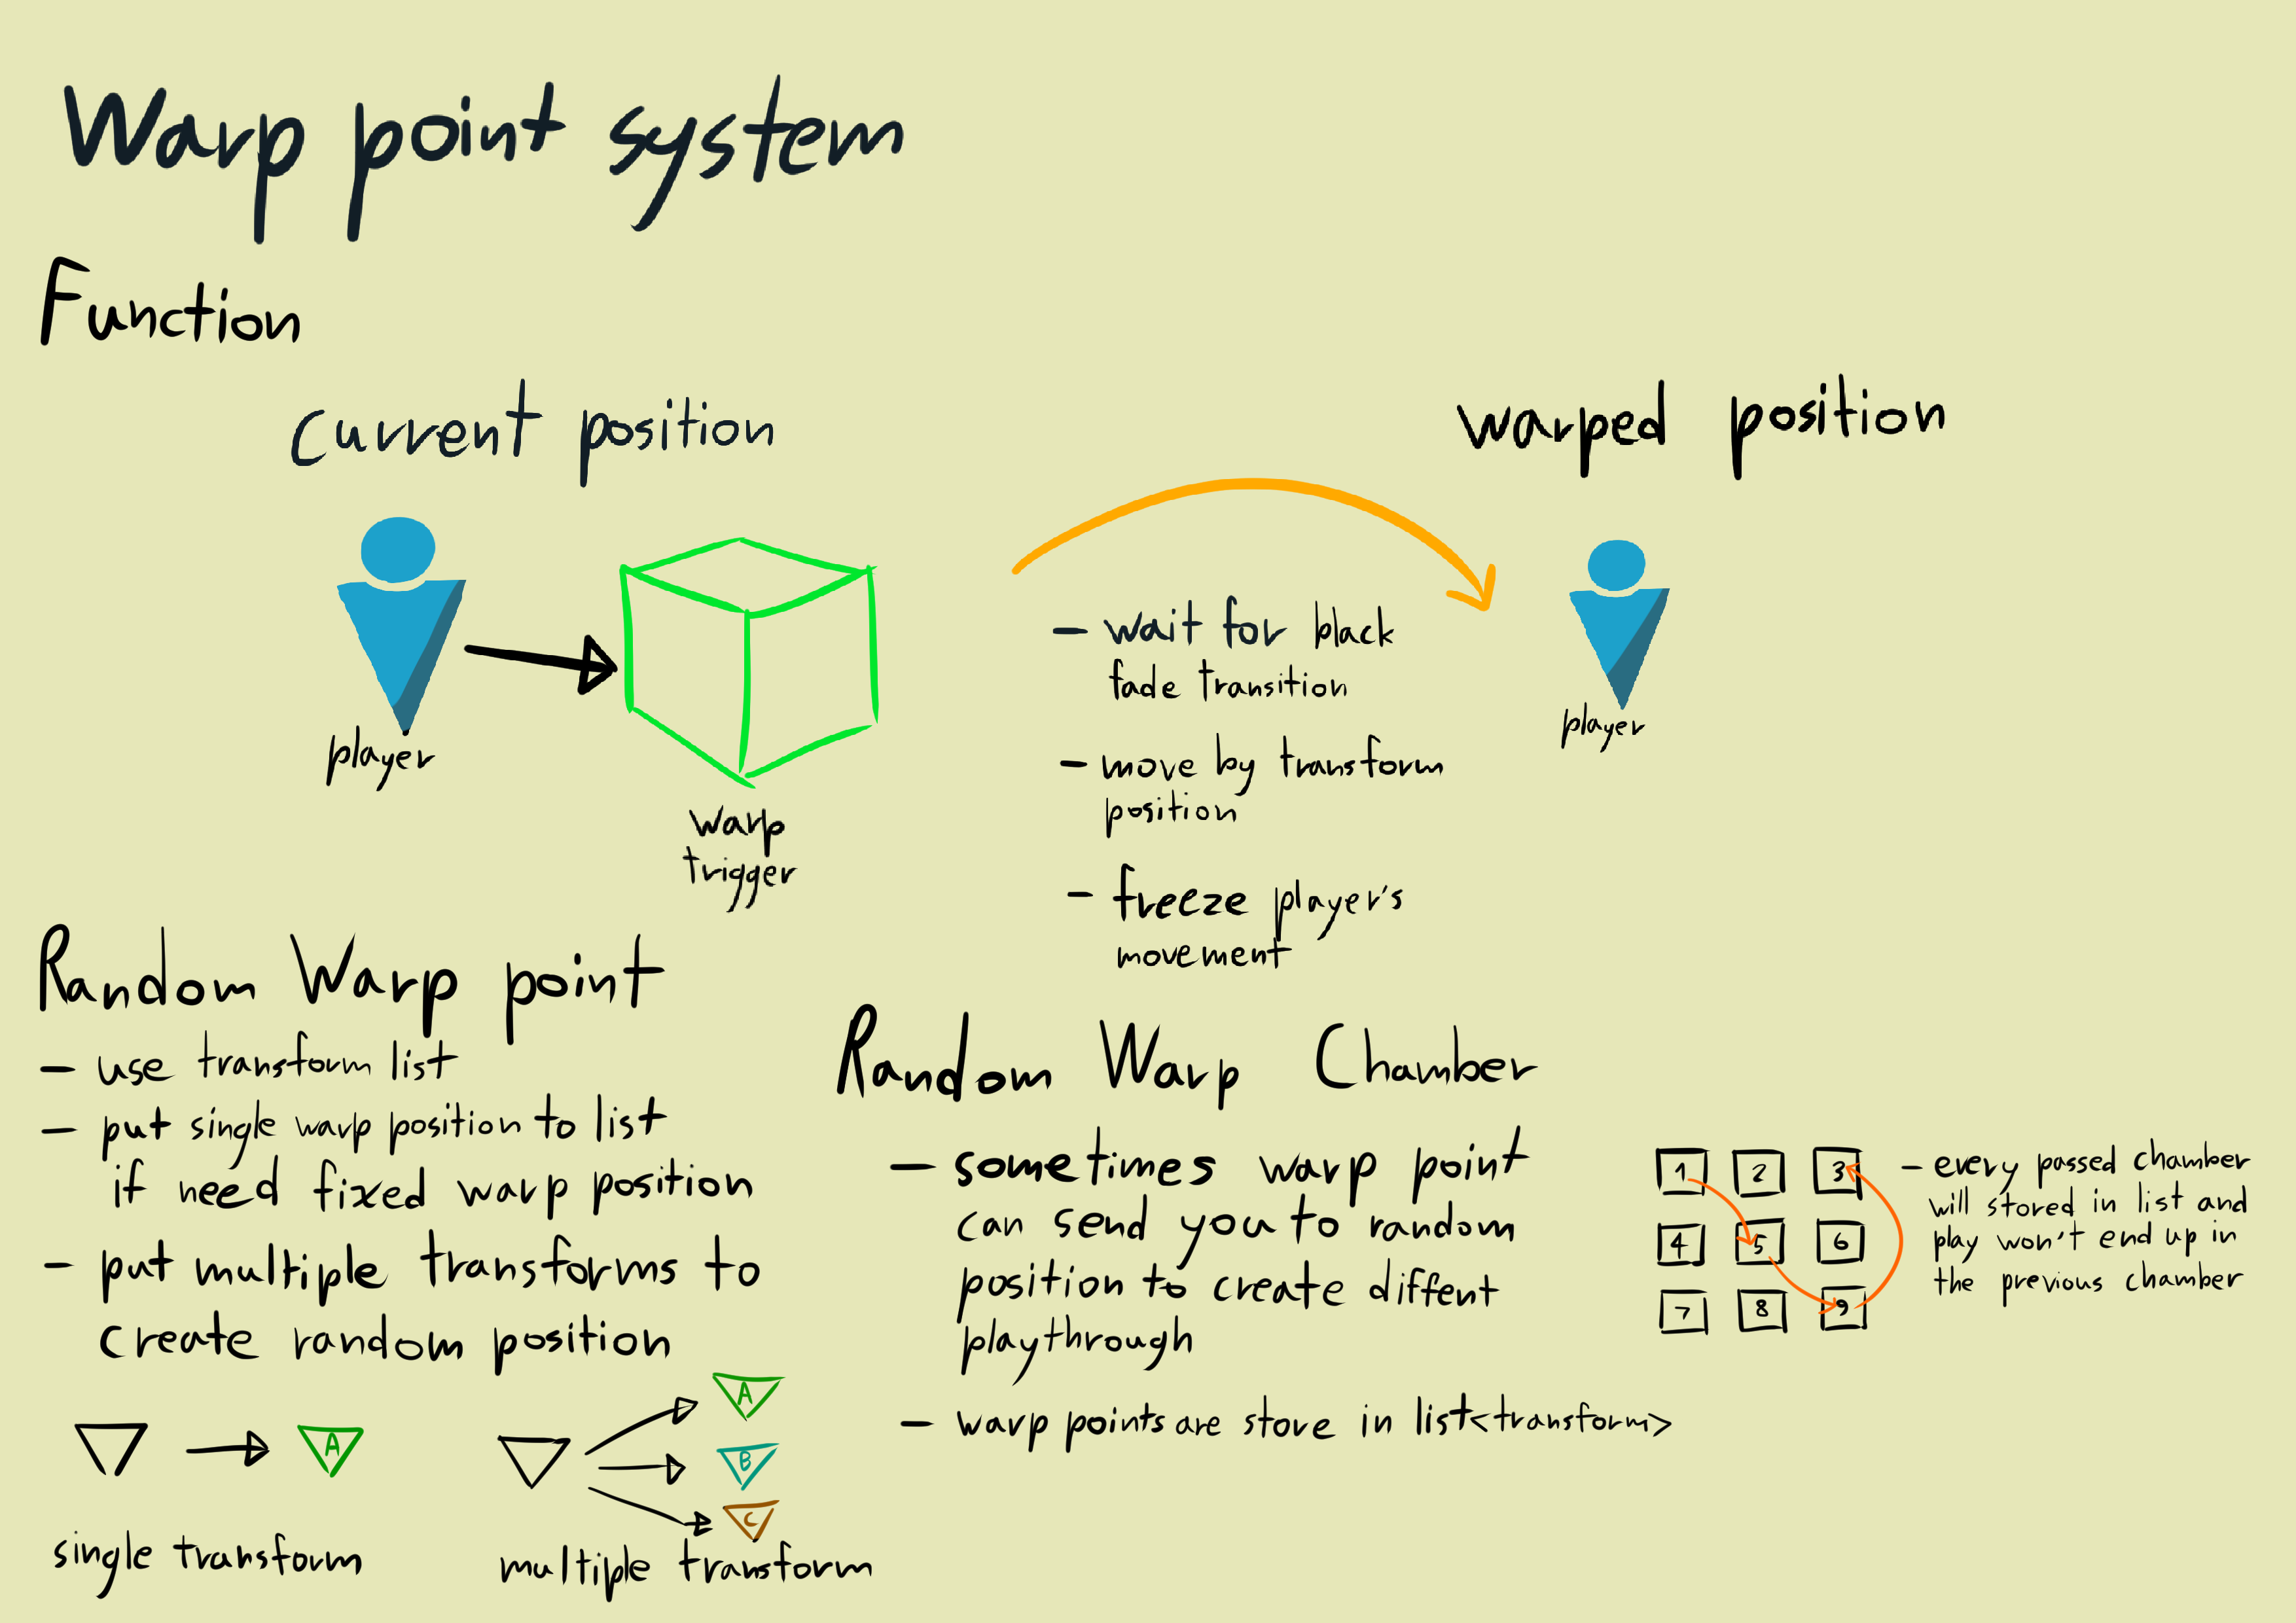 Warp point system
Function
current position
warped position
player
warp
trigger
- wait for black
fade transition
- move by transform
position
- freeze player's
movement
player
Random Warp point
- use transform list
- put single warp position to list
if need fixed warp position
- put multiple transforms to
create random position
A
single transform
A
B
C
multiple transform
Random Warp Chamber
- sometimes warp point
can send you to random
position to create diffent
playthrough
- warp points are store in list<transform>
1 2 3
4 5 6
7 8 9
- every passed chamber
will stored in list and
play won't end up in
the previous chamber